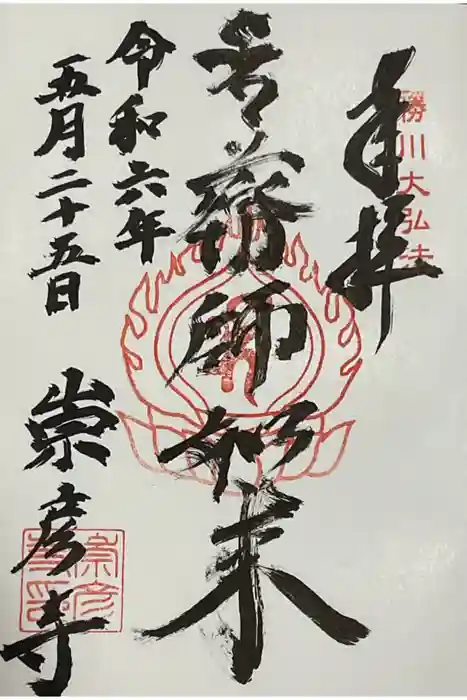 勝川大弘法
奉拝
薬師如来
令和六年
五月二十五日
崇彦寺
崇彦
寺印